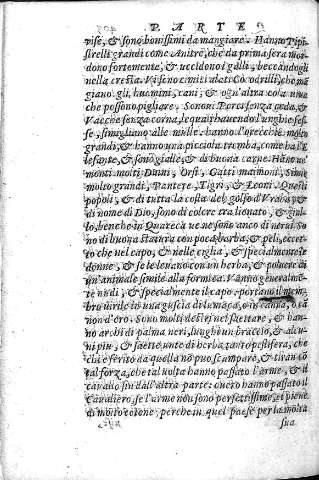 PARTE
vise, & sono bonissimi da mangiare. Hanno Pipi
strelli grandi come Anitre, che da prima sera mor
dono fortemente, & uccidono i galli, beccandogli
nella cresta. Vi sono cimitidati: Cocodrilli, che mã
giano gli huomini, cani, & ogn'altra cosa uiua
che possono pigliare. Sonoui Porci senza coda, &
Vacche senza corna, le quai hauendo l'unghie fes-
se, simigliano alle mulle. hanno l'orecchie molto
grandi, & hanno una picciola tromba, come ha l'E
lefante, & sono gialle, & di buona carne. Hãno ui
monti molti Daini, Orsi, Gatti maimoni, Simie
molto grandi, Pantere, Tigri, & Leoni. Questi
popoli, & di tutta la costa del golfo d'Vraba, &
di nome di Dio, sono di colore tra lionato, & gial-
lo, benche in Quareca ue ne sono anco di neri. So
no di buona statura con poca barba, & peli, eccet
to che nel capo, & nelle ciglia, & specialmente le
donne, & se le leuano con un herba, & poluere di
un'animale simile alla formica. Vanno generalmẽ
te nudi, & specialmente il capo. portano il mem-
bro uirile in una guscia di lumaca, o in canna, o ca
non d'oro. Sono molti destri nel saettare, & han-
no archi di palma neri, lunghi un braccio, & alcu-
ni piu, & saette unte di herba tanto pestifera, che
chi è ferito da quella nõ puo scampare, & tirau cõ
tal forza, che tal uolta hanno passato l'arme, & il
cauallo sin dall'altra parte: ouero hanno passato il
Caualiero, se l'arme non sono perfettissime, et piene
di molto cotone: perche in quel paese per la molta
sua